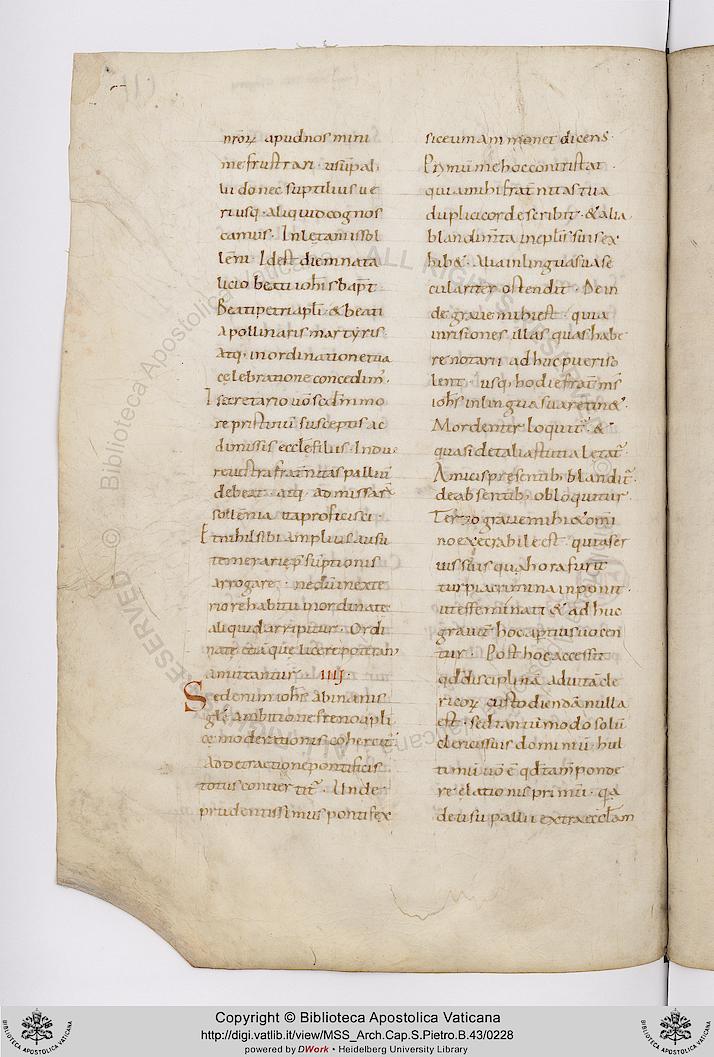 nr̄oꝝ apud nos mini
me frustrari · usu pal
lii donec suptilius ue
riusq · aliquid cognos
camus · In lętaniis sol
lēni · Id est die m nata
licio beati ioh̄is bapt̄
Beati petri apl̄i · & beati
apollinaris martyris ·
atq · in ordinatione tua
cęlebratione concedim̄ ·
In secretario uō sc̄dm̄ mo
re pristinū susceptis ac
dimissis eccl̄e filiis · Indue
re uestra frat̄nitas palliū
debeat · atq · ad missarū
sollēnia ita proficisci ·
Et nihil sibi amplius ausu
temerarię p̄sūptionis
arrogare · ne dū in exte
riore habitu inordinate
aliquid arripitur · Ordi
nate etiā que licere poterant
amittantur · IIII ·
Sed enim ioh̄s ab inanis
gl̄e ambitione freno apl̄i
cę moderationis cohercit̄
Ad detractione pontificis
totus convertit̄ · Unde
prudentissimus pontifex
sic eum ammonet dicens ·
Primū me hoc contristat
quia mihi frat̄nitas tua
duplici corde scribit · & alia
blandim̄ta in ep̄lis suis ex
hib& · Alia in lingua sua se
culariter ostendit · Dein
de graue mihi est · quia
inrisiones illas quas habe
re notarii adhuc pueri so
lent · usq · hodie frat̄ m̄s
ioh̄s in lingua sua retin& ·
Mordenter loquit̄ · &
quasi de tali astutia lętat̄ ·
Amicis presentib · blandit̄ ·
de absentib · obloquitur ·
Tertio graue mihi & omi
no execrabile est · quia ser
uis suis qua hora furit
turpia crimina inponit ·
ut esseminati & ad huc
grauiū hoc aptius uocen
tur · Post hoc accessit
qd̄ disciplina ad uitā cle
ricoꝝ custodiendā nulla
est · sed tantūmodo solū
clericis suis dominū · Hul
timū uō ē qd̄ tam̄ ponde
re elationis primū · q̄a
de usu pallii extra eccl̄am
Copyright © Biblioteca Apostolica Vaticana
http://digi.vatlib.it/view/MSS_Arch.Cap.S.Pietro.B.43/0228
powered by DWork • Heidelberg University Library